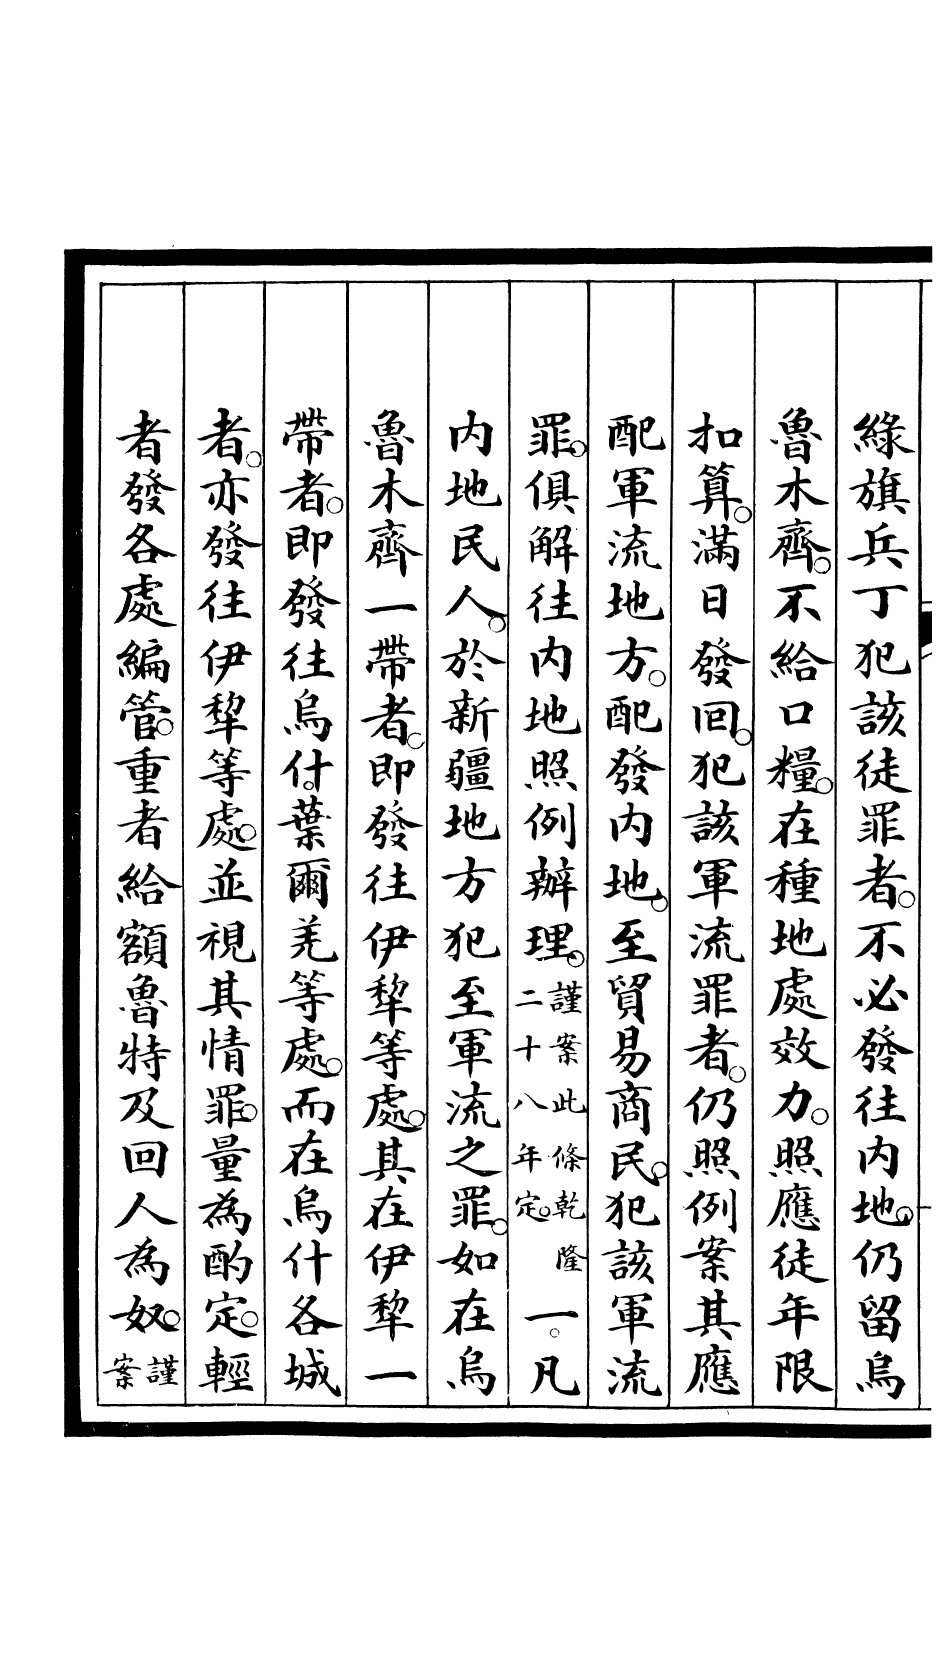 綠旗兵丁犯該徒罪者。不必發往內地。仍留烏
魯木齊。不給口糧。在種地處效力。照應徒年限
扣算。滿日發回。犯該軍流罪者。仍照例案其應
配軍流地方。配發內地。至貿易商民。犯該軍流
罪。俱解往內地照例辦理。謹案此條乾隆二十八年定。一。凡
內地民人。於新疆地方犯至軍流之罪。如在烏
魯木齊一帶者。即發往伊犂等處。其在伊犂一
帶者。即發往烏什。葉爾羌等處。而在烏什各城
者。亦發往伊犂等處。並視其情罪。量為酌定。輕
者發各處編管。重者給額魯特及回人為奴。謹案